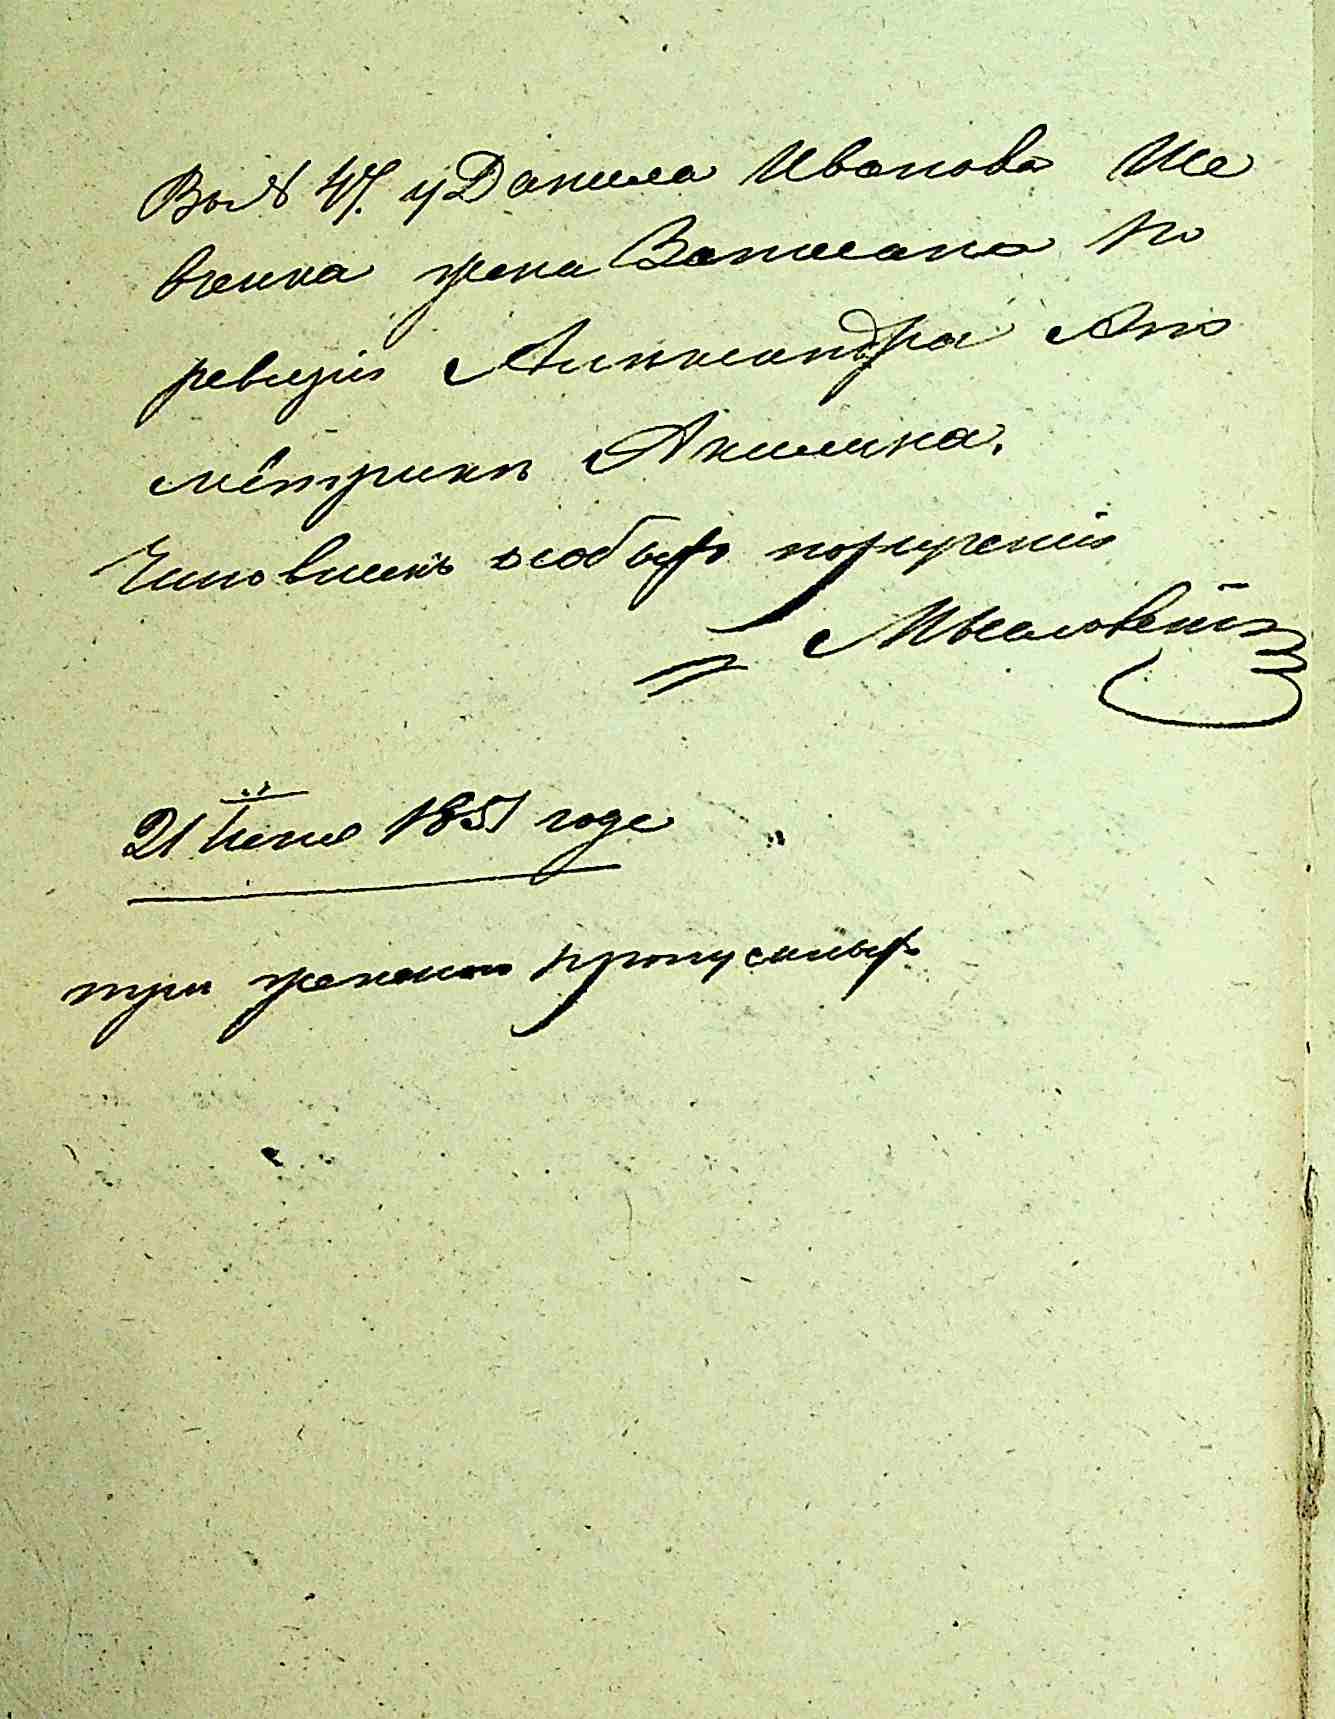 Во № 47. у Данила Иванова Ше
вченка жена записана по
ревизіи Александра а по
метрикѣ Акилина.
Чиновникъ особыхъ порученій
21 Іюня 1851 года
три женских пропускных